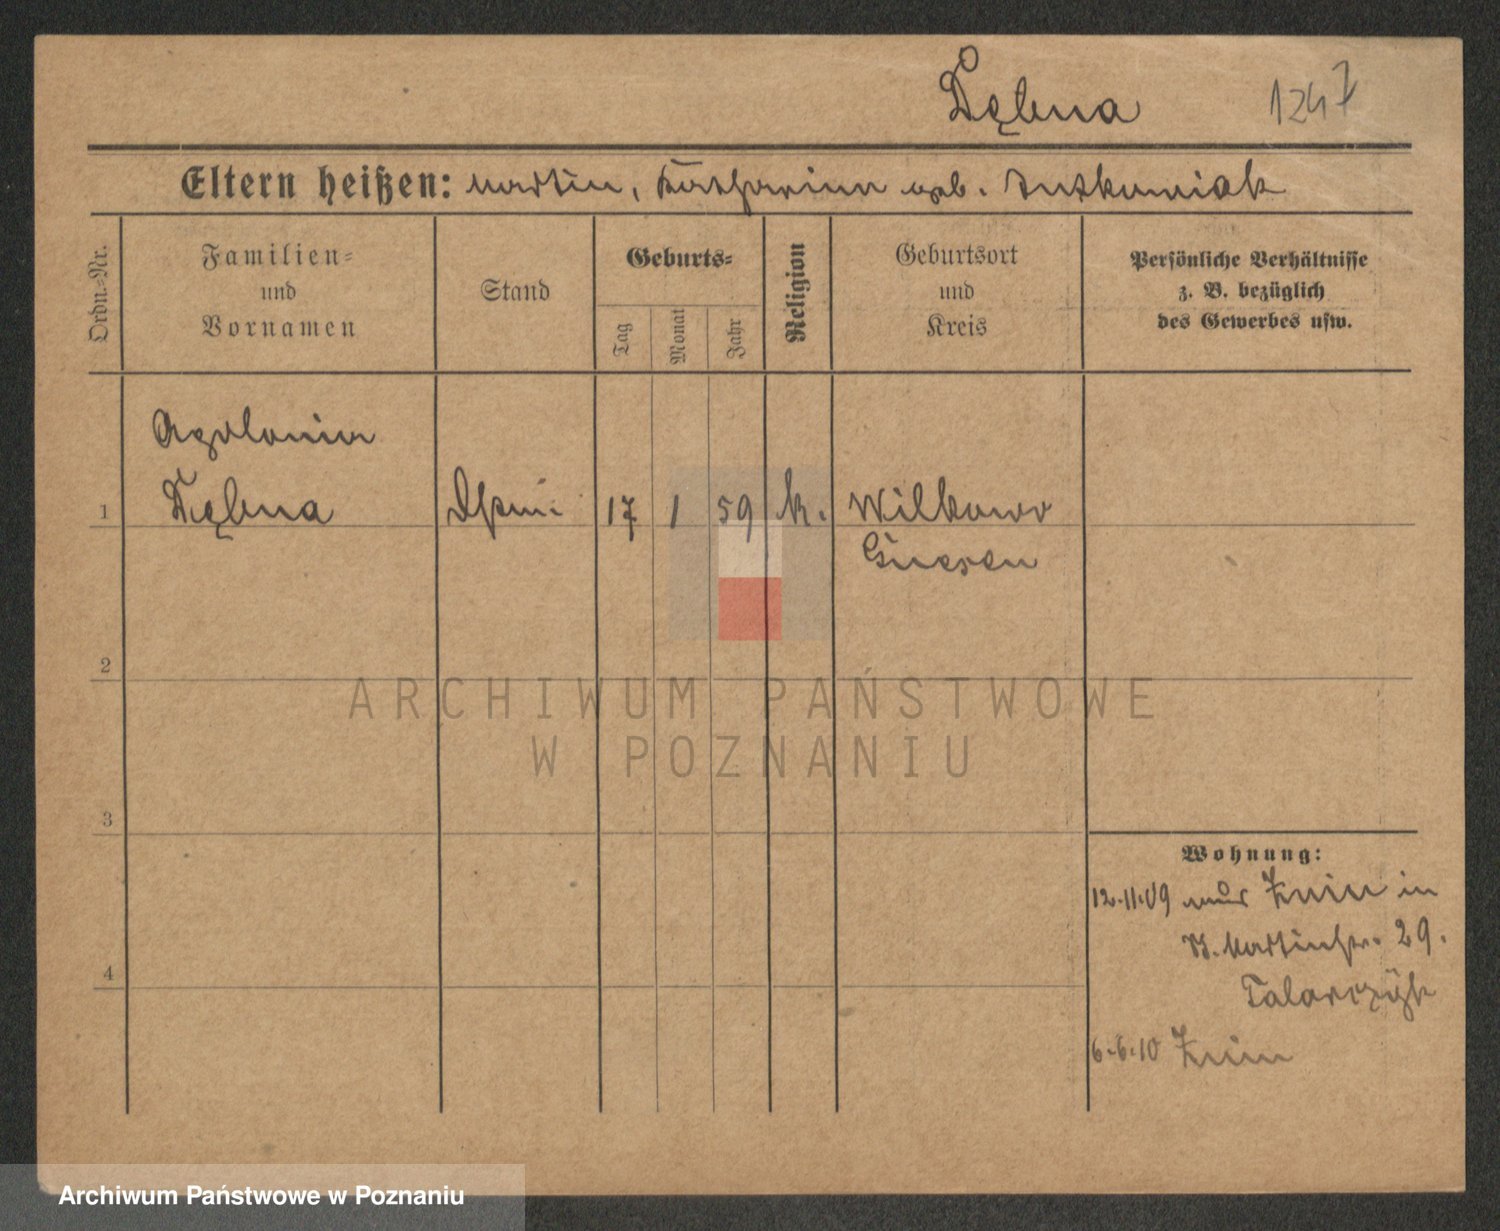 Dębna 1247
Eltern heißen: Martin, Katharina geb. Rutkowiak
Ordn.-Nr.
Familien-
und
Vornamen
Stand
Geburts-
Tag
Monat
Jahr
Religion
Geburtsort
und
Kreis
Persönliche Verhältnisse
z. B. bezüglich
des Gewerbes usw.
Apolonia
1 Dębna 17 1 59 k. Wilkowo
Gnesen
2
ARCHIWUM PAŃSTWOWE
W POZNANIU
3
Wohnung:
12.11.09 aus Znin in
St. Martinstr. 29.
Talarczyk
4
6.6.10 Znin
Archiwum Państwowe w Poznaniu